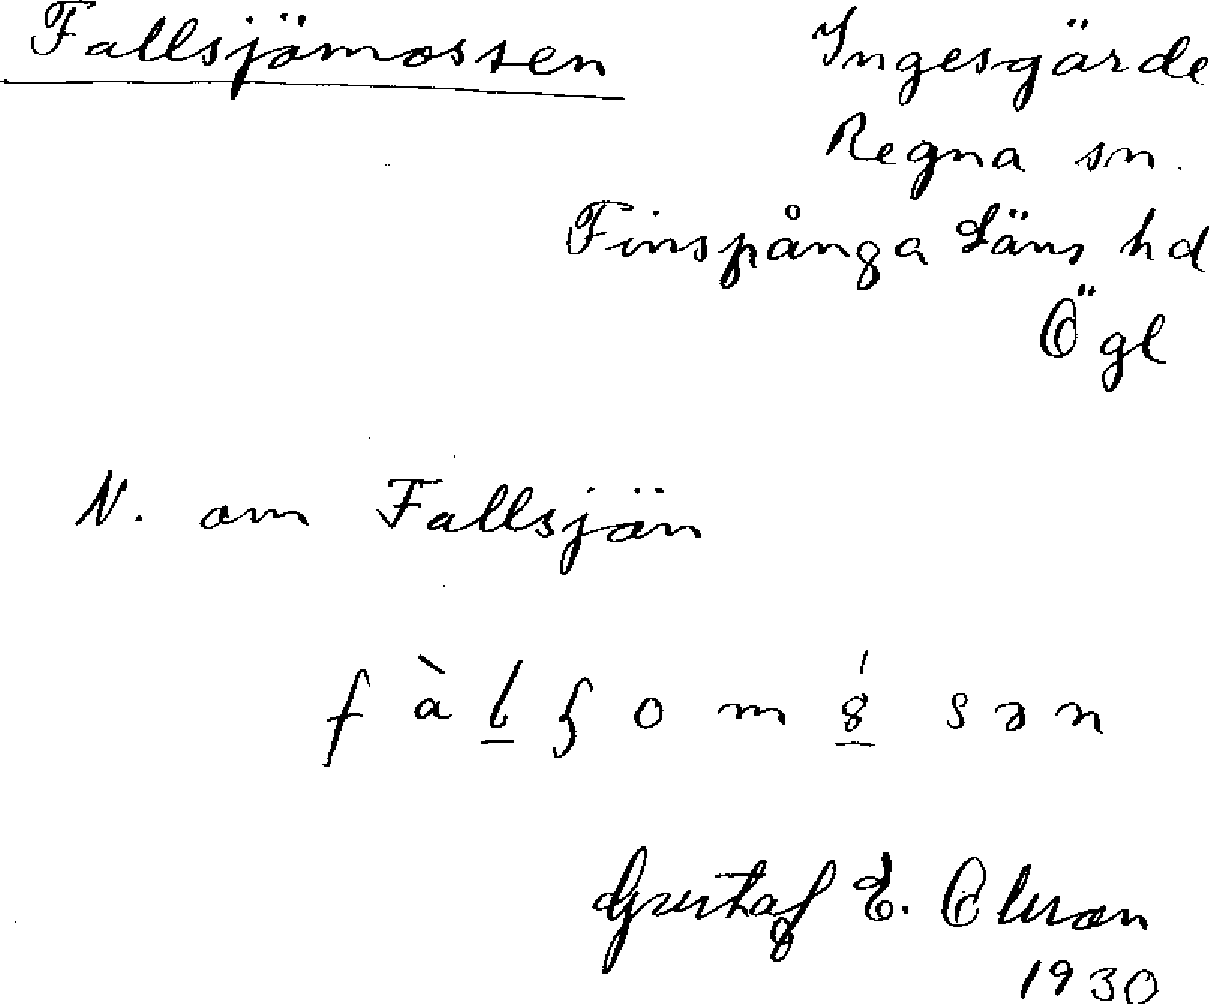 Fallsjömossen
Ingesgärde
Regna sn.
Finspånga Läns hd
Ögl
N. om Fallsjön
Gustaf E. Olsson
1930